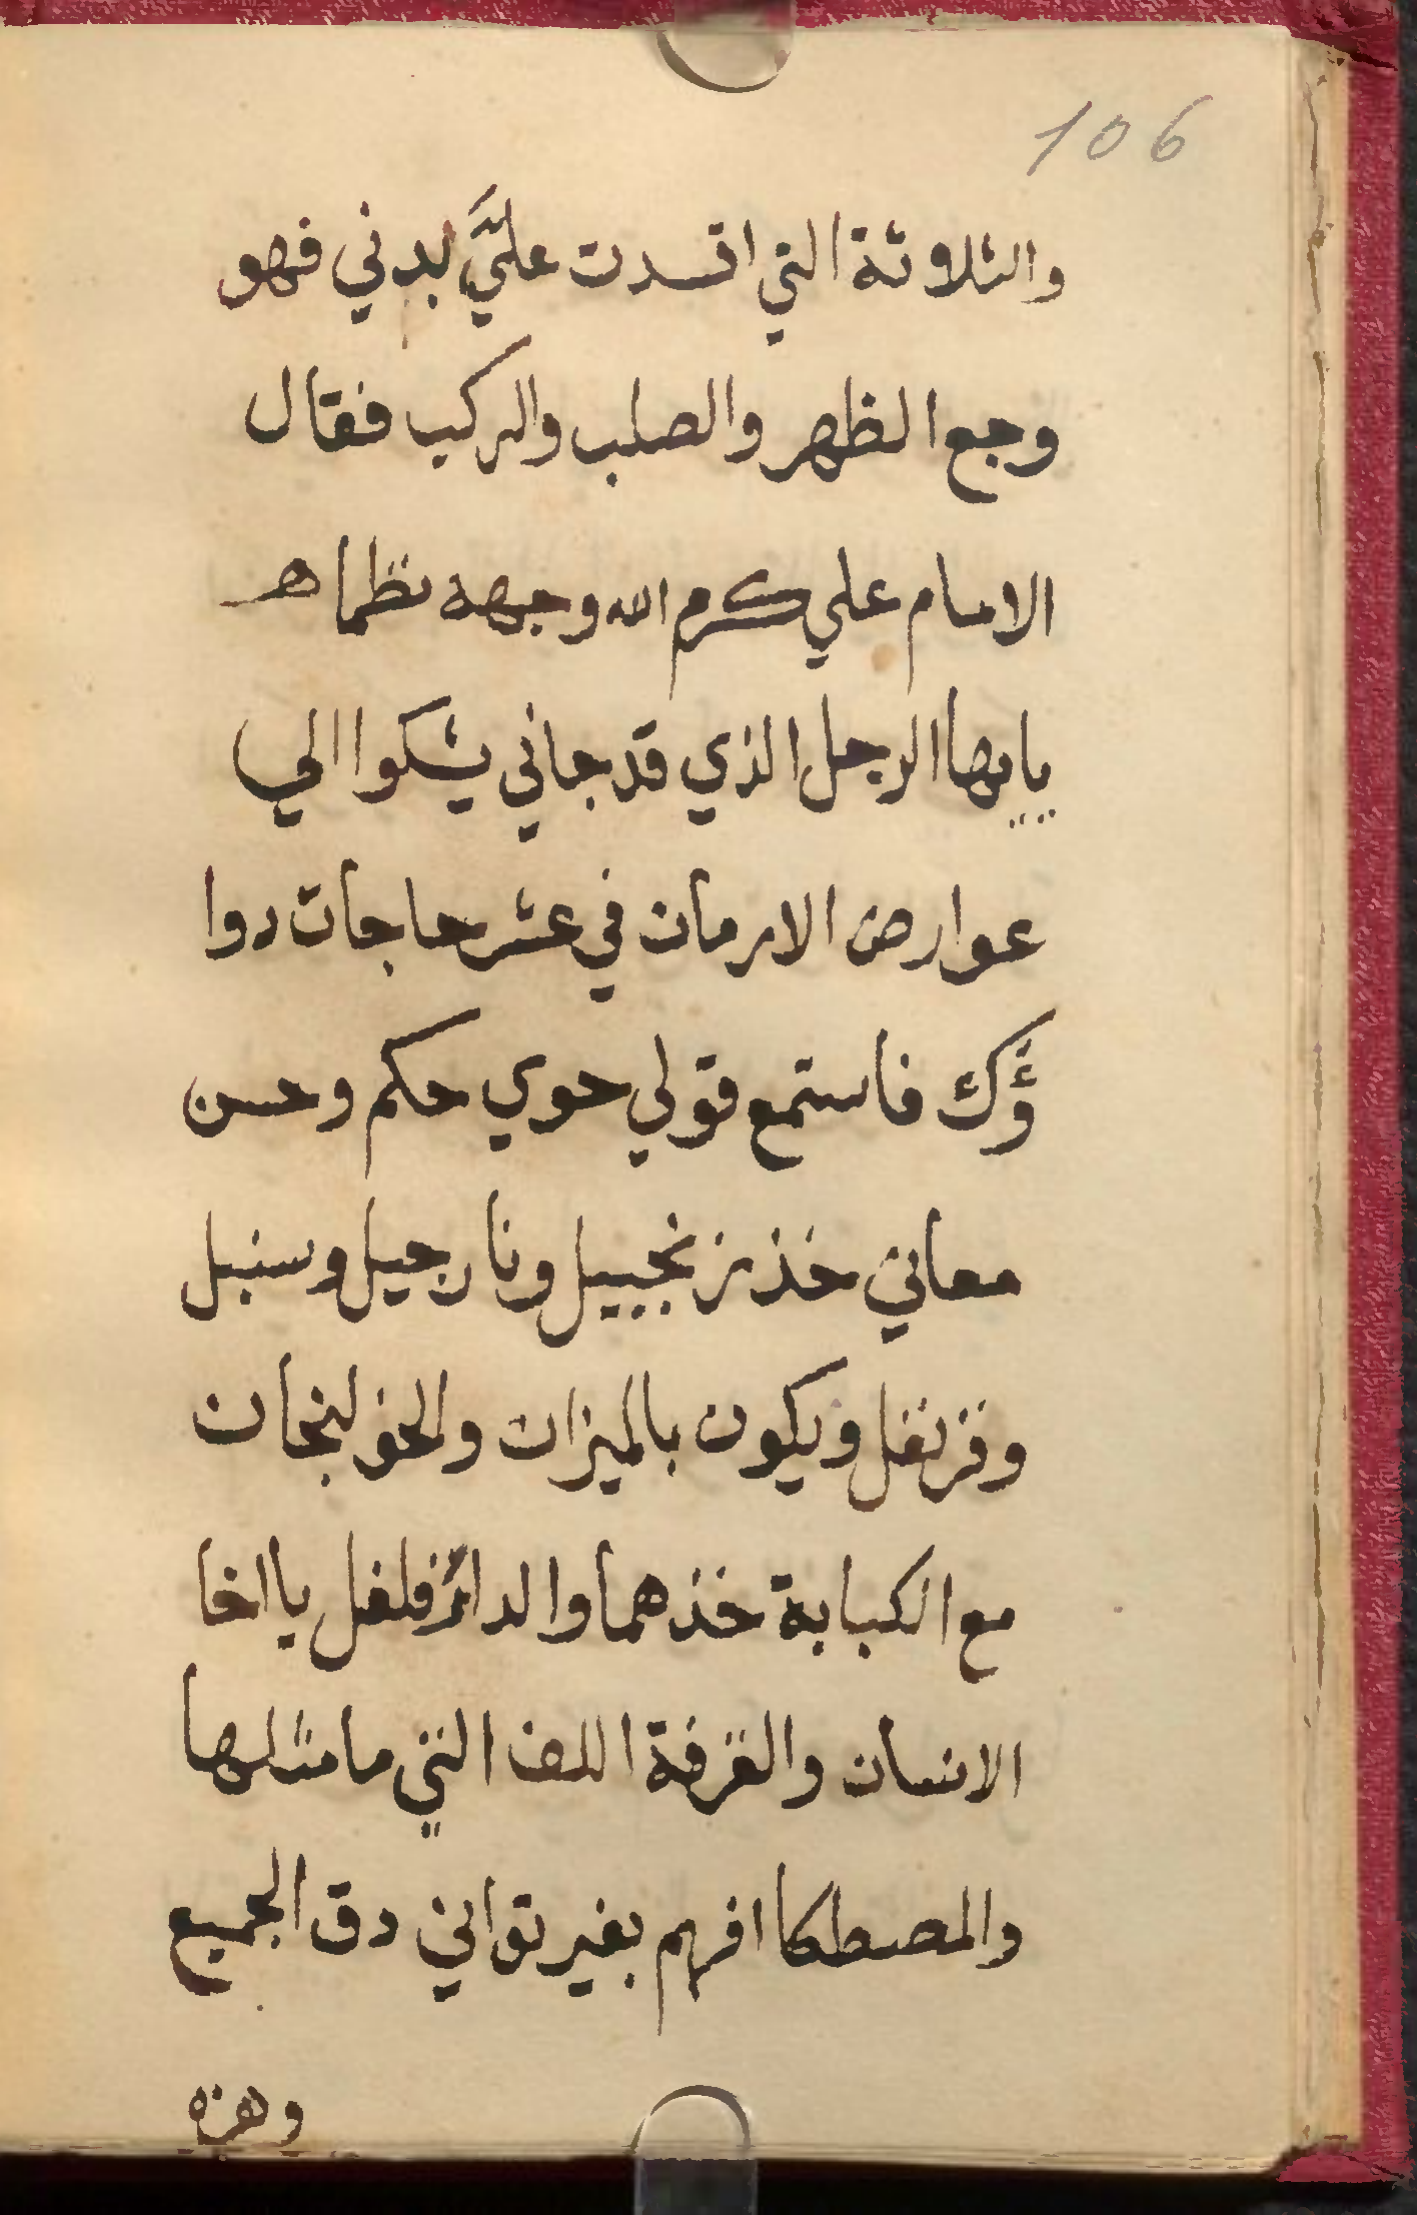 106
والثلاثة التي افسدت عليَّ بدني فهو
وجع الظهر والصلب والركب فقال
الامام علي كرم الله وجهه نظما هـ
يايها الرجل الذي قد جاني يشكوا الي
عوارض الازمان في عشر حاجات دوا
ؤك فاستمع قولي حوي حكم وحسن
معاني خذ زنجبيل ونارجيل وسنبل
وقرنفل ويكون بالميزان والخولنجان
مع الكبابة خذهما والدار فلفل يا اخا
الانسان والقرفة اللف التي ما مثلها
والمصطكا افهم بغير تواني دق الجميع
وهزه